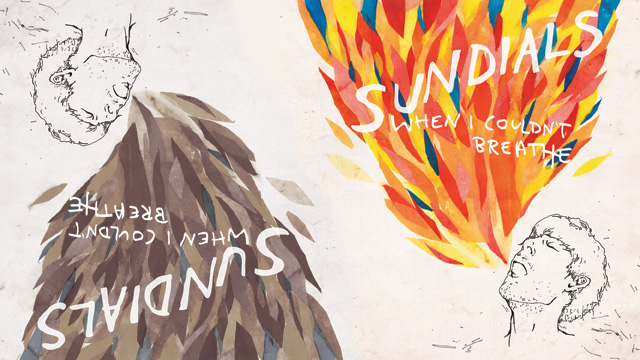 SUNDIALS
WHEN I COULDN'T
BREATHE
SUNDIALS
WHEN I COULDN'T
BREATHE